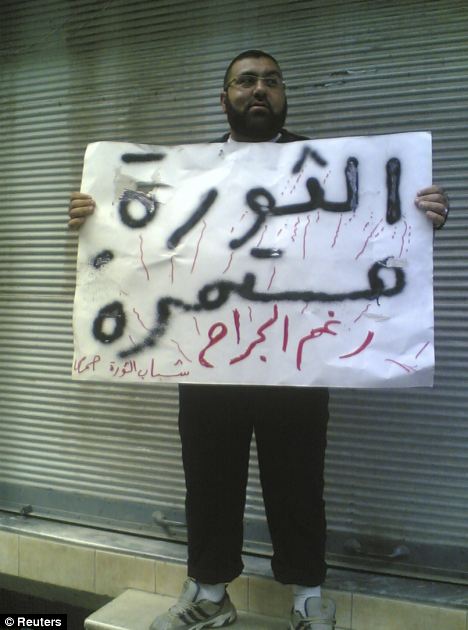 الثورة
مستمرة
رغم الجراح
شباب الثورة حماه
© Reuters